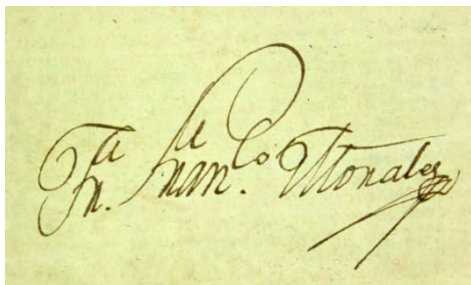 Jn. Fran.co Morales